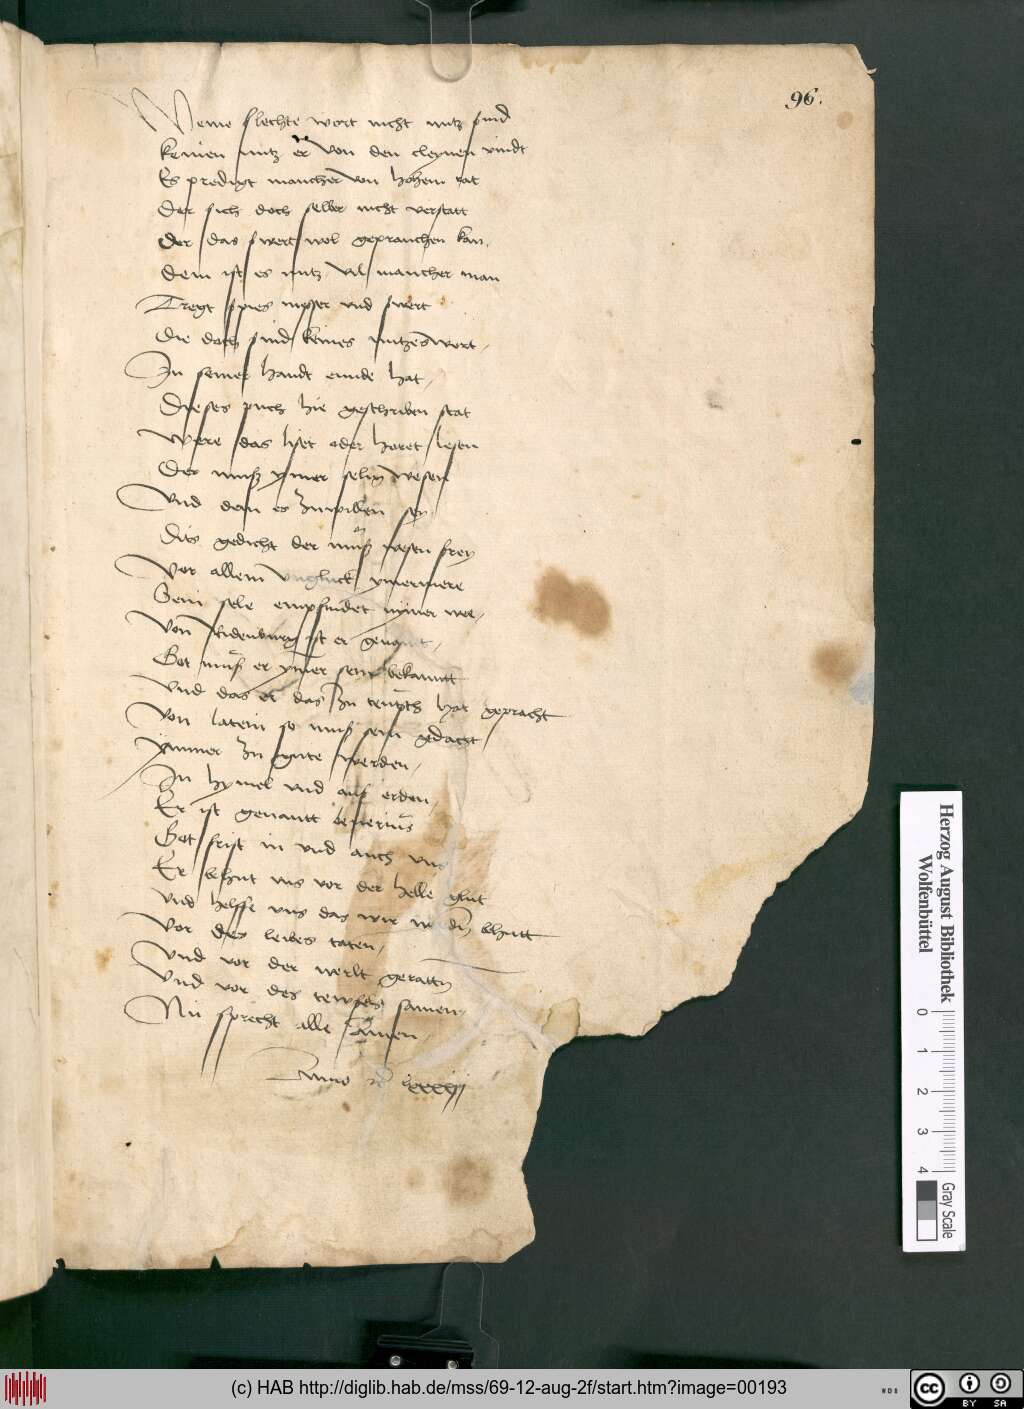 96.
Meine slechte wort nicht nutz sind
keinen nutz er von den cleynen vindt
Es predigt mancher von hohem rat
Der sich doch selber nicht verstatt
Der das swert wol geprauchen kan
dem ist es nutz vil mancher man
Tregt spies messer vnd swert
Die doch sind keines nutzes wert
In seiner handt ennde hat
Dieses puch hie geschriben stat
Were das liset oder horet lesen
Der muß ymer selig wesen
Vnd dem es zuwillen sey
Dits gedicht der muß wesen frey
Vor allem vngluck ymermere
Sein sele empfindet nymer wee
Von ist er genant
Got muß er ymer sein bekanntt
Vnd das er das zu teutsch hat gepracht
Von latein so muß sein gedacht
ymmer zu gute werden
In hymel vnd auf erden
Er ist genantt
Got frist in vnd auch vns
Er behut vns vor der helle glut
vnd helffe vns das wir werden behutt
Vor des leibes taten
Vnd vor der werlt
Vnd vor des tewfels samen
Nu sprecht alle Amen
Anno lxxxiij
Herzog August Bibliothek
Wolfenbüttel
0 1 2 3 4
Gray Scale
(c) HAB http://diglib.hab.de/mss/69-12-aug-2f/start.htm?image=00193
WDB
cc BY SA